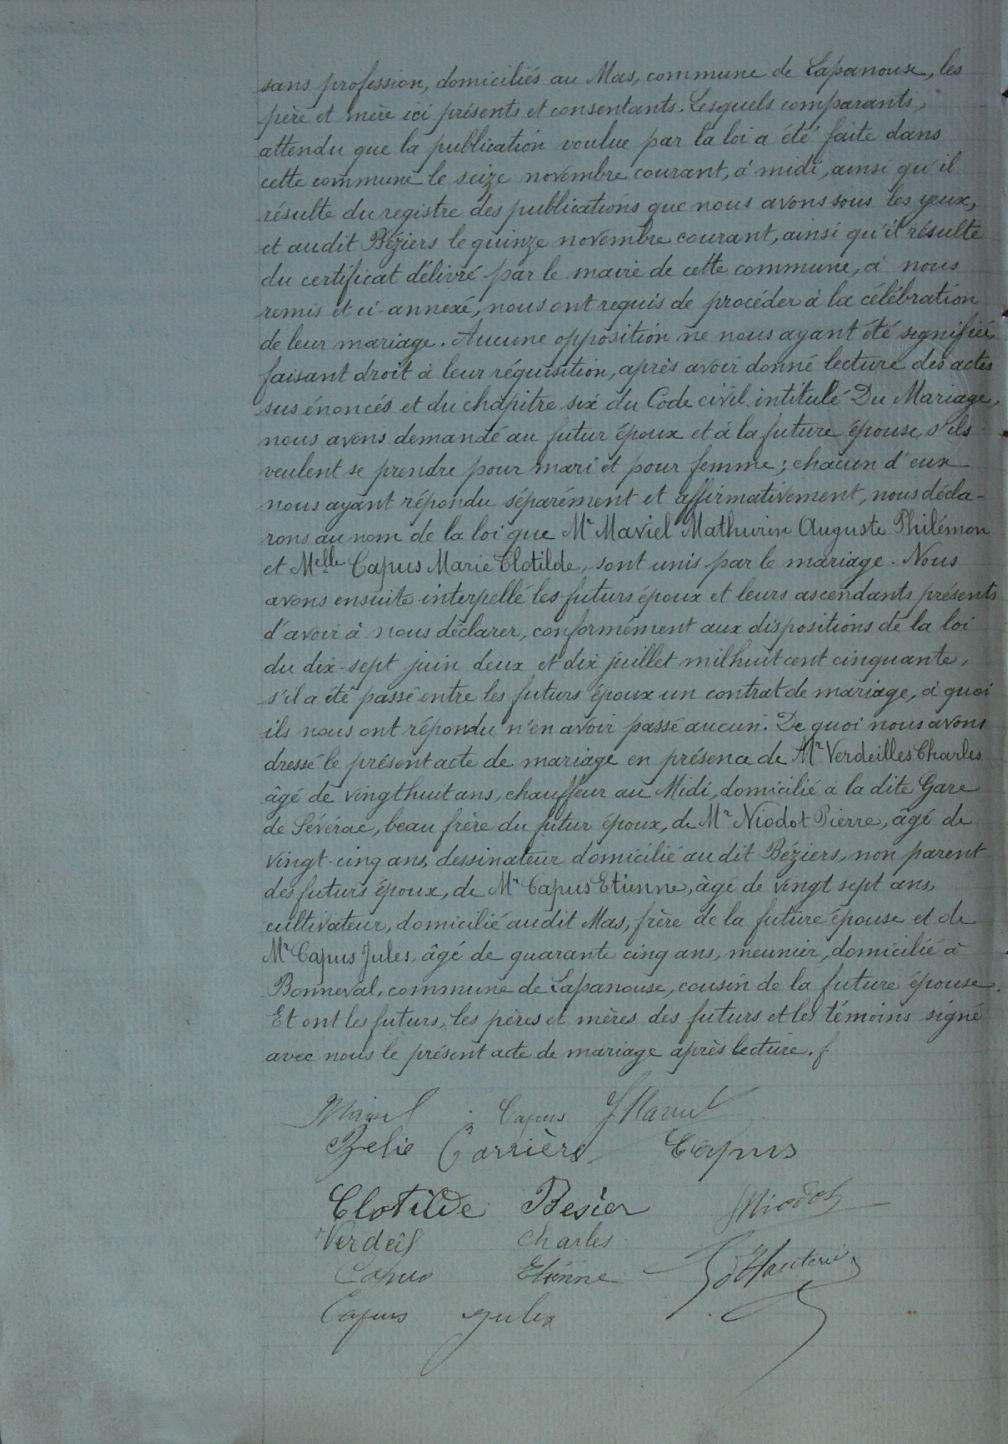 sans profession, domiciliés au Mas, commune de Lapanouse, les
père et mère ici présents et consentants. Lesquels comparants,
attendu que la publication voulue par la loi a été faite dans
cette commune le seize novembre courant, à midi, ainsi qu'il
résulte du registre des publications que nous avons sous les yeux,
et audit Béziers le quinze novembre courant, ainsi qu'il résulte
du certificat délivré par le maire de cette commune, à nous
remis et ci-annexé, nous ont requis de procéder à la célébration
de leur mariage. Aucune opposition ne nous ayant été signifiée,
faisant droit à leur réquisition, après avoir donné lecture des actes
sus énoncés et du chapitre six du Code civil intitulé Du Mariage,
nous avons demandé au futur époux et à la future épouse, s'ils
veulent se prendre pour mari et pour femme ; chacun d'eux
nous ayant répondu séparément et affirmativement, nous décla-
rons au nom de la loi que Mr Maviel Mathurin Auguste Philémon
et Melle Capus Marie Clotilde, sont unis par le mariage. Nous
avons ensuite interpellé les futurs époux et leurs ascendants présents
d'avoir à nous déclarer, conformément aux dispositions de la loi
du dix-sept juin deux et dix juillet mil huit cent cinquante,
s'il a été passé entre les futurs époux un contrat de mariage, à quoi
ils nous ont répondu n'en avoir passé aucun. De quoi nous avons
dressé le présent acte de mariage en présence de Mr Verdeilles Charles
âgé de vingt huit ans, chauffeur au Midi, domicilié à la dite Gare
de Sévérac, beau frère du futur époux, de Mr Niodot Pierre, âgé de
vingt-cinq ans, dessinateur domicilié au dit Béziers, non parent
des futurs époux, de Mr Capus Etienne, âgé de vingt sept ans,
cultivateur, domicilié audit Mas, frère de la future épouse et de
Mr Capus Jules, âgé de quarante cinq ans, meunier, domicilié à
Bonneval, commune de Lapanouse, cousin de la future épouse.
Et ont les futurs, les pères et mères des futurs et les témoins signé
avec nous le présent acte de mariage après lecture.
Maviel Capus Maviel
Zelie Carrière Capus
Clotilde Besier Niodot
Verdeil Charles
Capus Etienne
Capus Jules